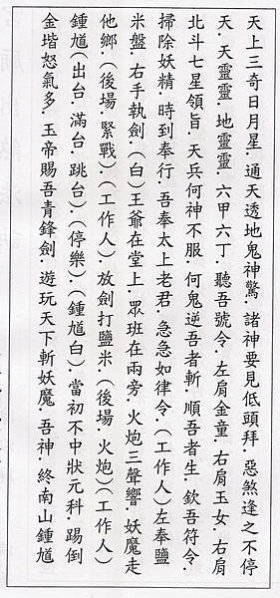 天上三奇日月星．通天透地鬼神驚．諸神要見低頭拜．惡煞逢之不停
天．天靈靈．地靈靈．六甲六丁．聽吾號令．左肩金童．右肩玉女．右肩
北斗七星領旨．天兵何神不服．何鬼逆吾者斬．順吾者生．欽吾符令．
掃除妖精．時到奉行．吾奉太上老君．急急如律令．(工作人)左奉鹽
米盤．右手執劍．(白)王爺在堂上．眾班在兩旁．火炮三聲響．妖魔走
他鄉．(後場．緊戰)．(工作人)．放劍打鹽米．(後場 火炮)(工作人)
鍾馗(出台．滿台．跳台)．(停樂)．(鍾馗白)．當初不中狀元科．踢倒
金堦怒氣多．玉帝賜吾青鋒劍．遊玩天下斬妖魔．吾神．終南山鍾馗